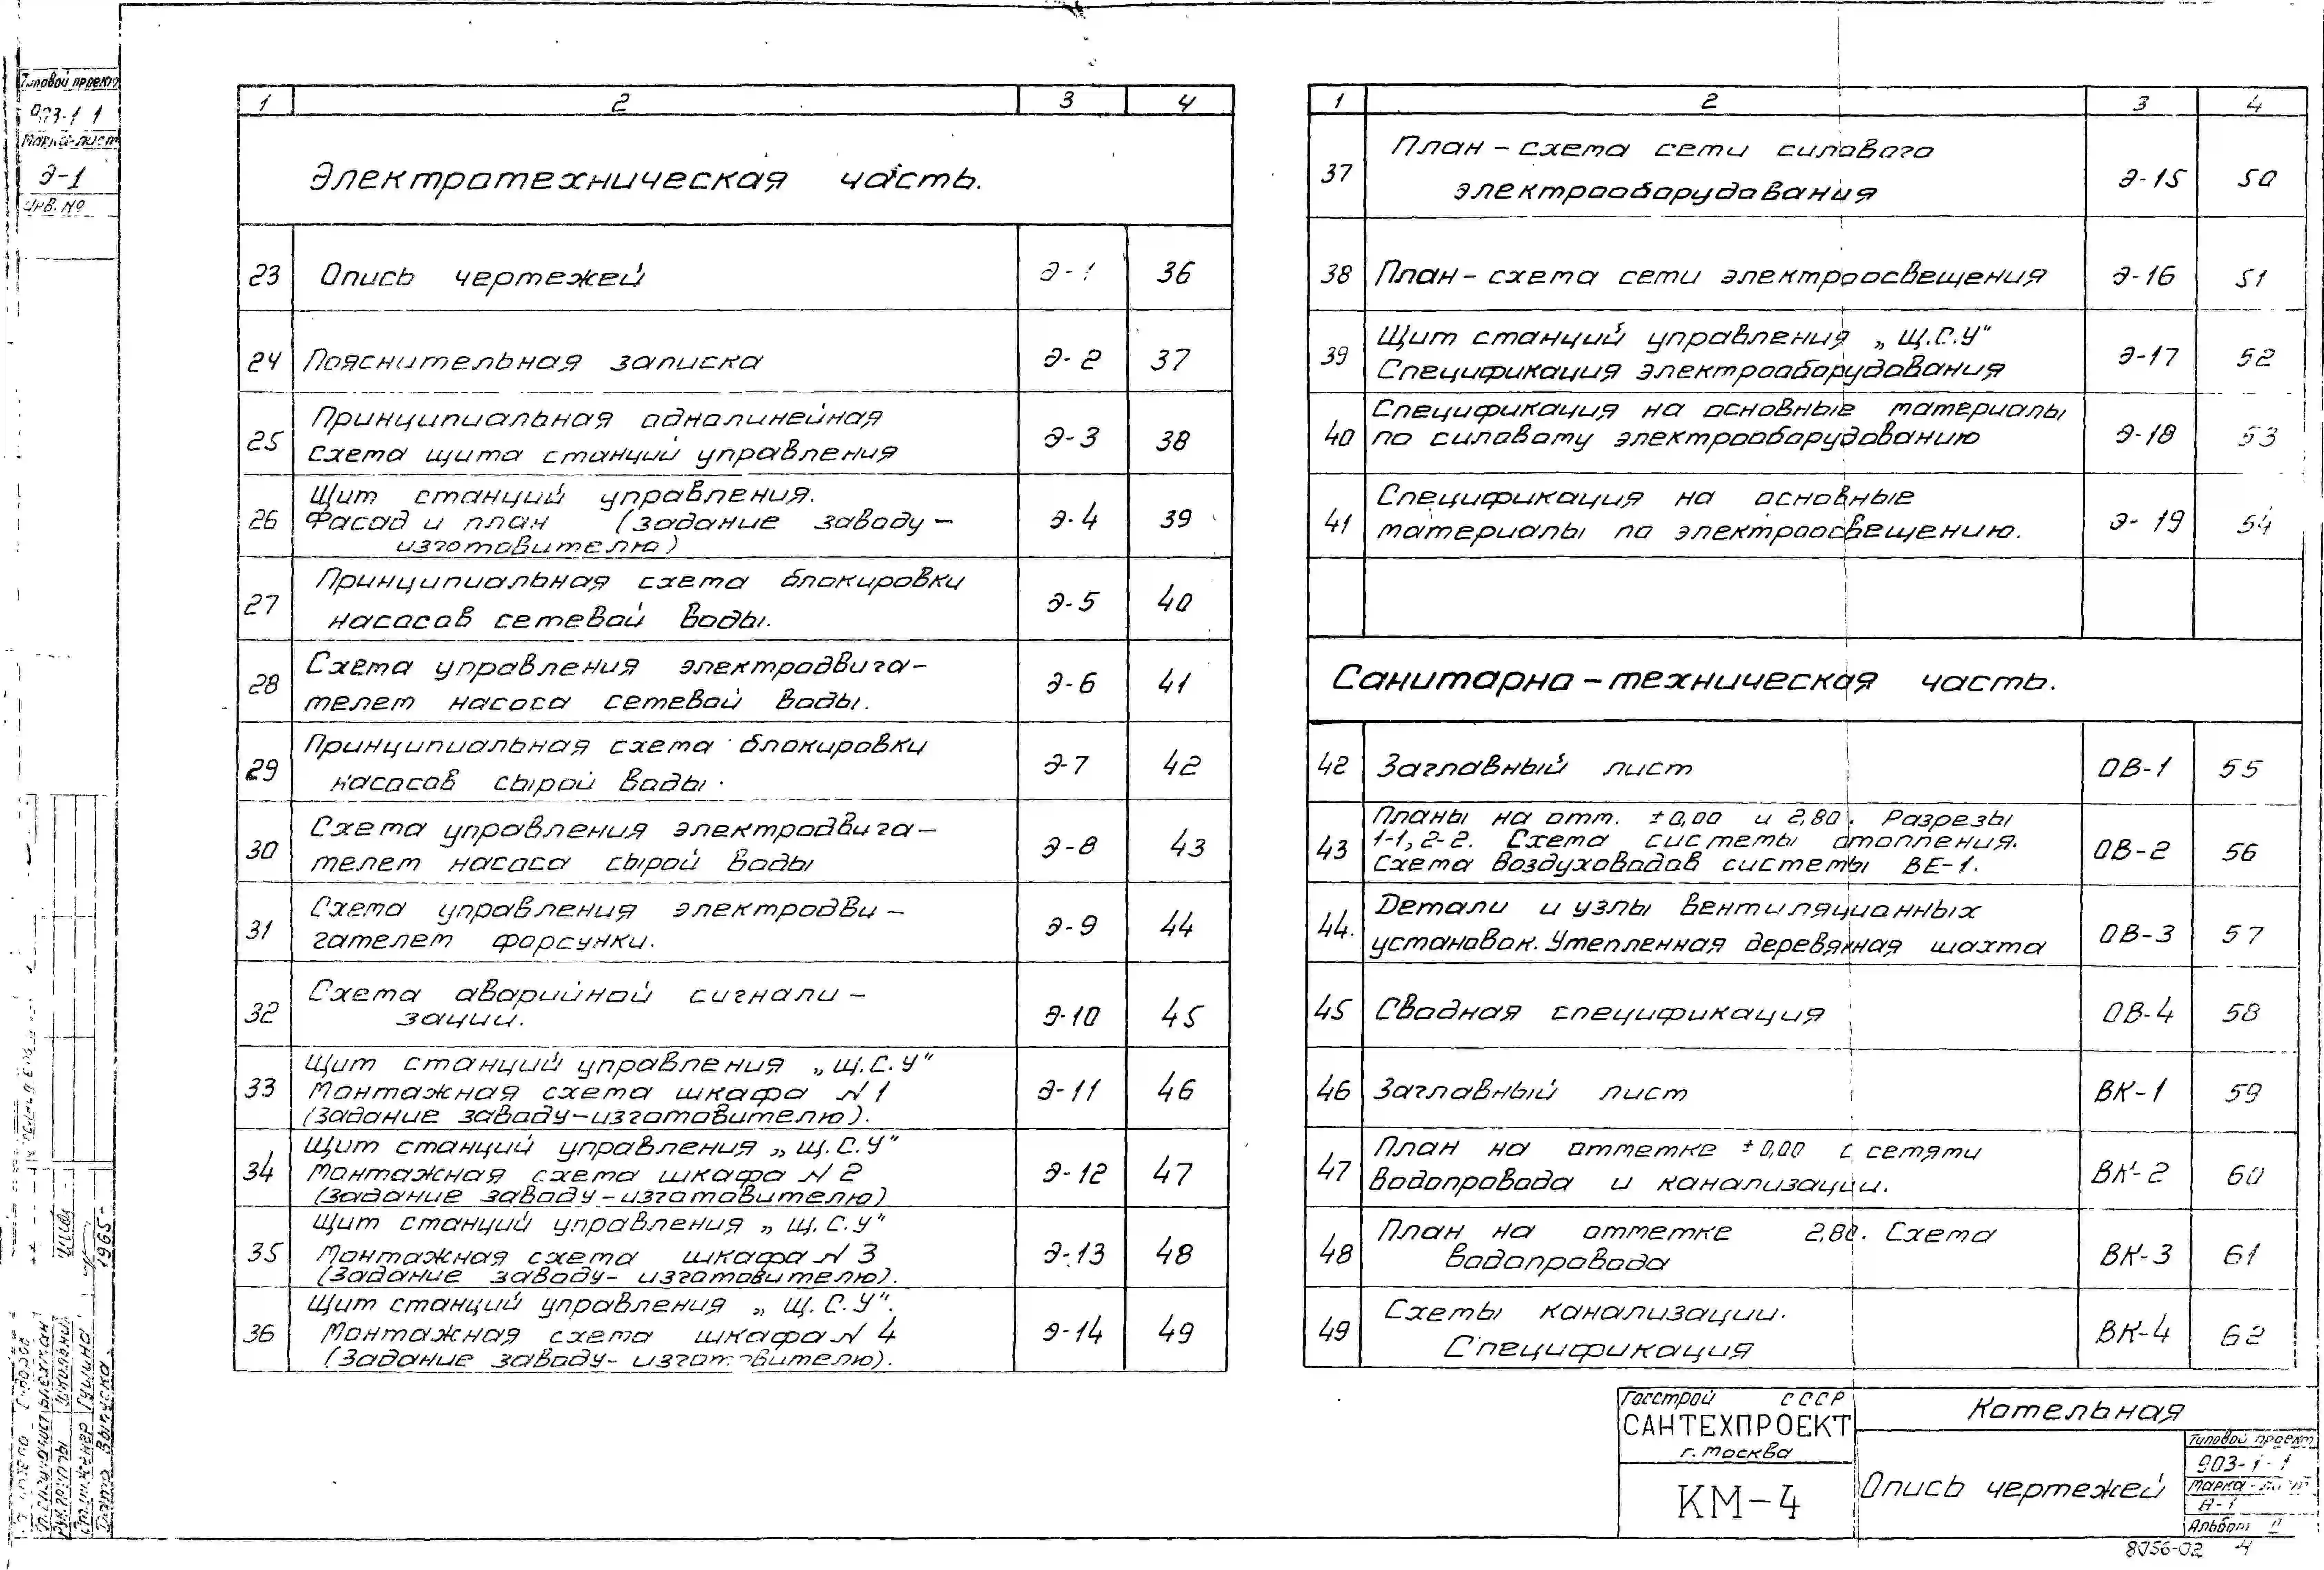 Типовой проект
903-1 1
Марка-лист
Э-1
Инв. №
1 2 3 4
Электротехническая часть.
23 Опись чертежей Э-1 36
24 Пояснительная записка Э-2 37
Принципиальная однолинейная
25 схема щита станций управления Э-3 38
Щит станций управления.
26 Фасад и план (задание заводу- Э-4 39
изготовителю)
Принципиальная схема блокировки
27 насосов сетевой воды. Э-5 40
Схема управления электродвига-
28 телем насоса сетевой воды. Э-6 41
Принципиальная схема блокировки
29 насосов сырой воды. Э-7 42
Схема управления электродвига-
30 телем насоса сырой воды Э-8 43
Схема управления электродви-
31 гателем форсунки. Э-9 44
Схема аварийной сигнали-
32 зации. Э-10 45
Щит станций управления „Щ.С.У"
33 Монтажная схема шкафа N 1 Э-11 46
(Задание заводу-изготовителю).
Щит станций управления „Щ.С.У"
34 Монтажная схема шкафа N 2 Э-12 47
(Задание заводу-изготовителю)
Щит станций управления „Щ.С.У"
35 Монтажная схема шкафа N 3 Э-13 48
(Задание заводу-изготовителю).
Щит станций управления „Щ.С.У".
36 Монтажная схема шкафа N 4 Э-14 49
(Задание заводу-изготовителю).
1 2 3 4
План-схема сети силового
37 электрооборудования Э-15 50
38 План-схема сети электроосвещения Э-16 51
Щит станций управления „Щ.С.У"
39 Спецификация электрооборудования Э-17 52
Спецификация на основные материалы
40 по силовому электрооборудованию Э-18 53
Спецификация на основные
41 материалы по электроосвещению. Э-19 54
Санитарно-техническая часть.
42 Заглавный лист ОВ-1 55
Планы на отм. ±0,00 и 2,80. Разрезы
43 1-1, 2-2. Схема системы отопления. ОВ-2 56
Схема воздуховодов системы ВЕ-1.
Детали и узлы вентиляционных
44. установок. Утепленная деревянная шахта ОВ-3 57
45 Сводная спецификация ОВ-4 58
46 Заглавный лист ВК-1 59
План на отметке ±0,00 с сетями
47 водопровода и канализации. ВК-2 60
План на отметке 2,80. Схема
48 водопровода ВК-3 61
Схемы канализации.
49 Спецификация ВК-4 62
Госстрой СССР
САНТЕХПРОЕКТ
г. Москва
КМ-4
Котельная
Опись чертежей
Типовой проект
903-1-1
Марка-лист
Альбом II
8056-02 4
Рук. группы Школьник
Ст. инженер Гушина
Дата выпуска. 1965